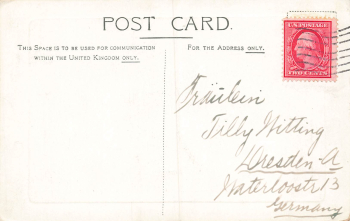 POST CARD.
THIS SPACE IS TO BE USED FOR COMMUNICATION
WITHIN THE UNITED KINGDOM ONLY.
FOR THE ADDRESS ONLY.
U.S. POSTAGE
TWO CENTS
Fräulein
Tilly Witting
Dresden-A
Waterloostr 13
Germany